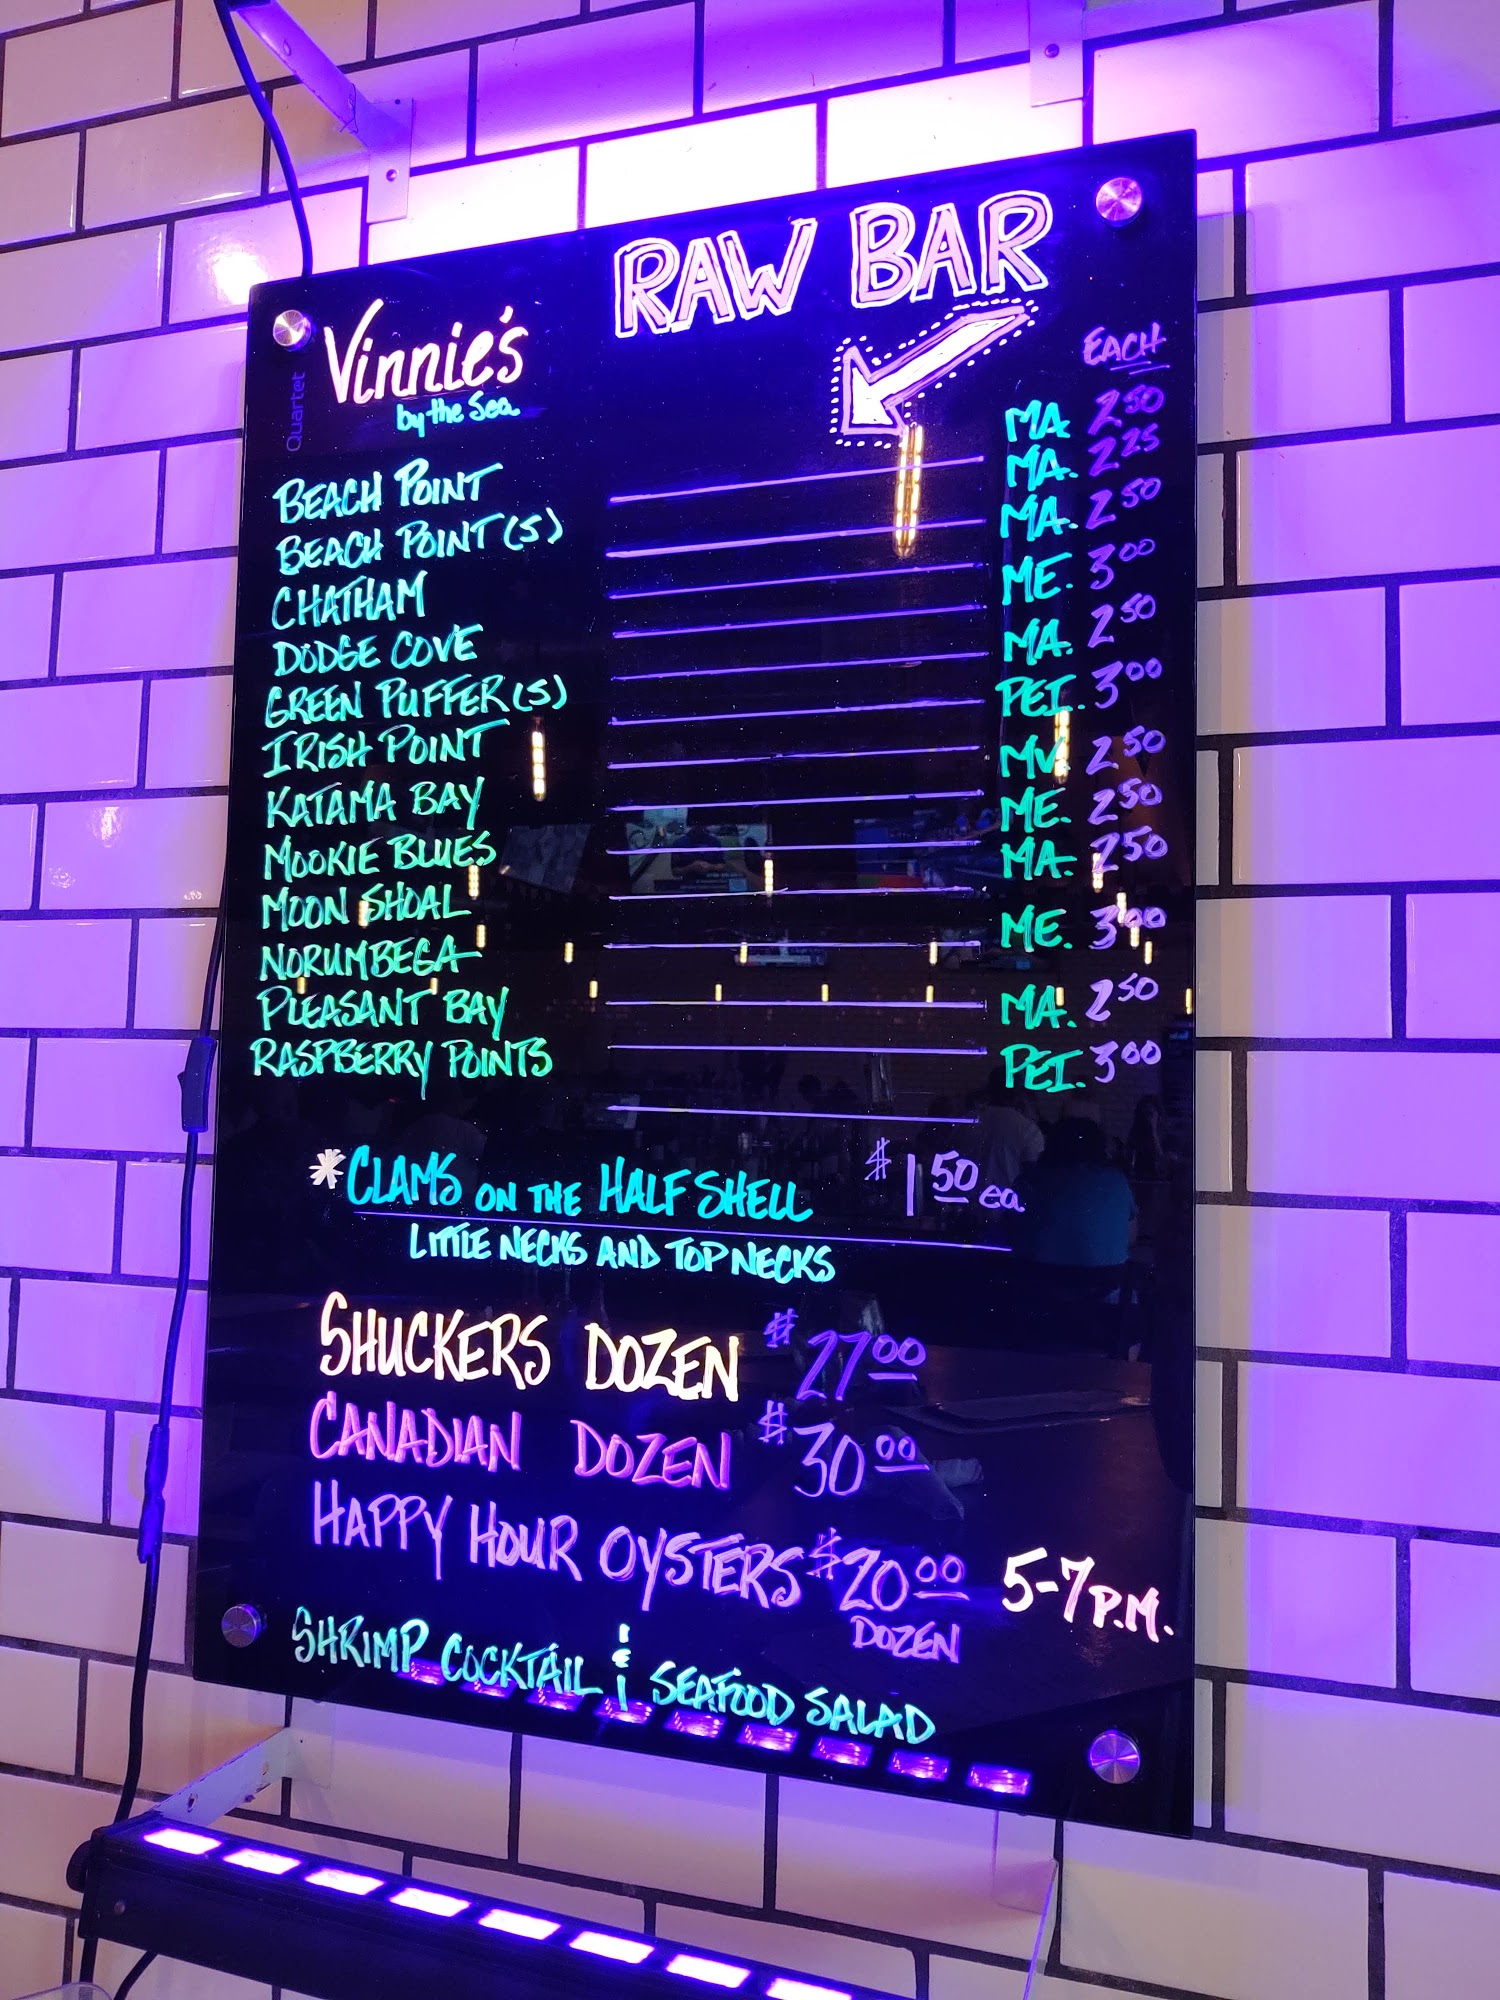 RAW BAR
Vinnie's
by the Sea
Quartet
EACH
BEACH POINT MA. 2 50
BEACH POINT (S) MA. 2 25
CHATHAM MA. 2 50
DODGE COVE ME. 3 00
GREEN PUFFER (S) MA. 2 50
IRISH POINT PEI. 3 00
KATAMA BAY MV. 2 50
MOOKIE BLUES ME. 2 50
MOON SHOAL MA. 2 50
NORUMBEGA ME. 3 00
PLEASANT BAY MA. 2 50
RASPBERRY POINTS PEI. 3 00
*CLAMS ON THE HALF SHELL $1 50 ea.
LITTLE NECKS AND TOP NECKS
SHUCKERS DOZEN $27 00
CANADIAN DOZEN $30 00
HAPPY HOUR OYSTERS $20 00 5-7 P.M.
DOZEN
SHRIMP COCKTAIL & SEAFOOD SALAD